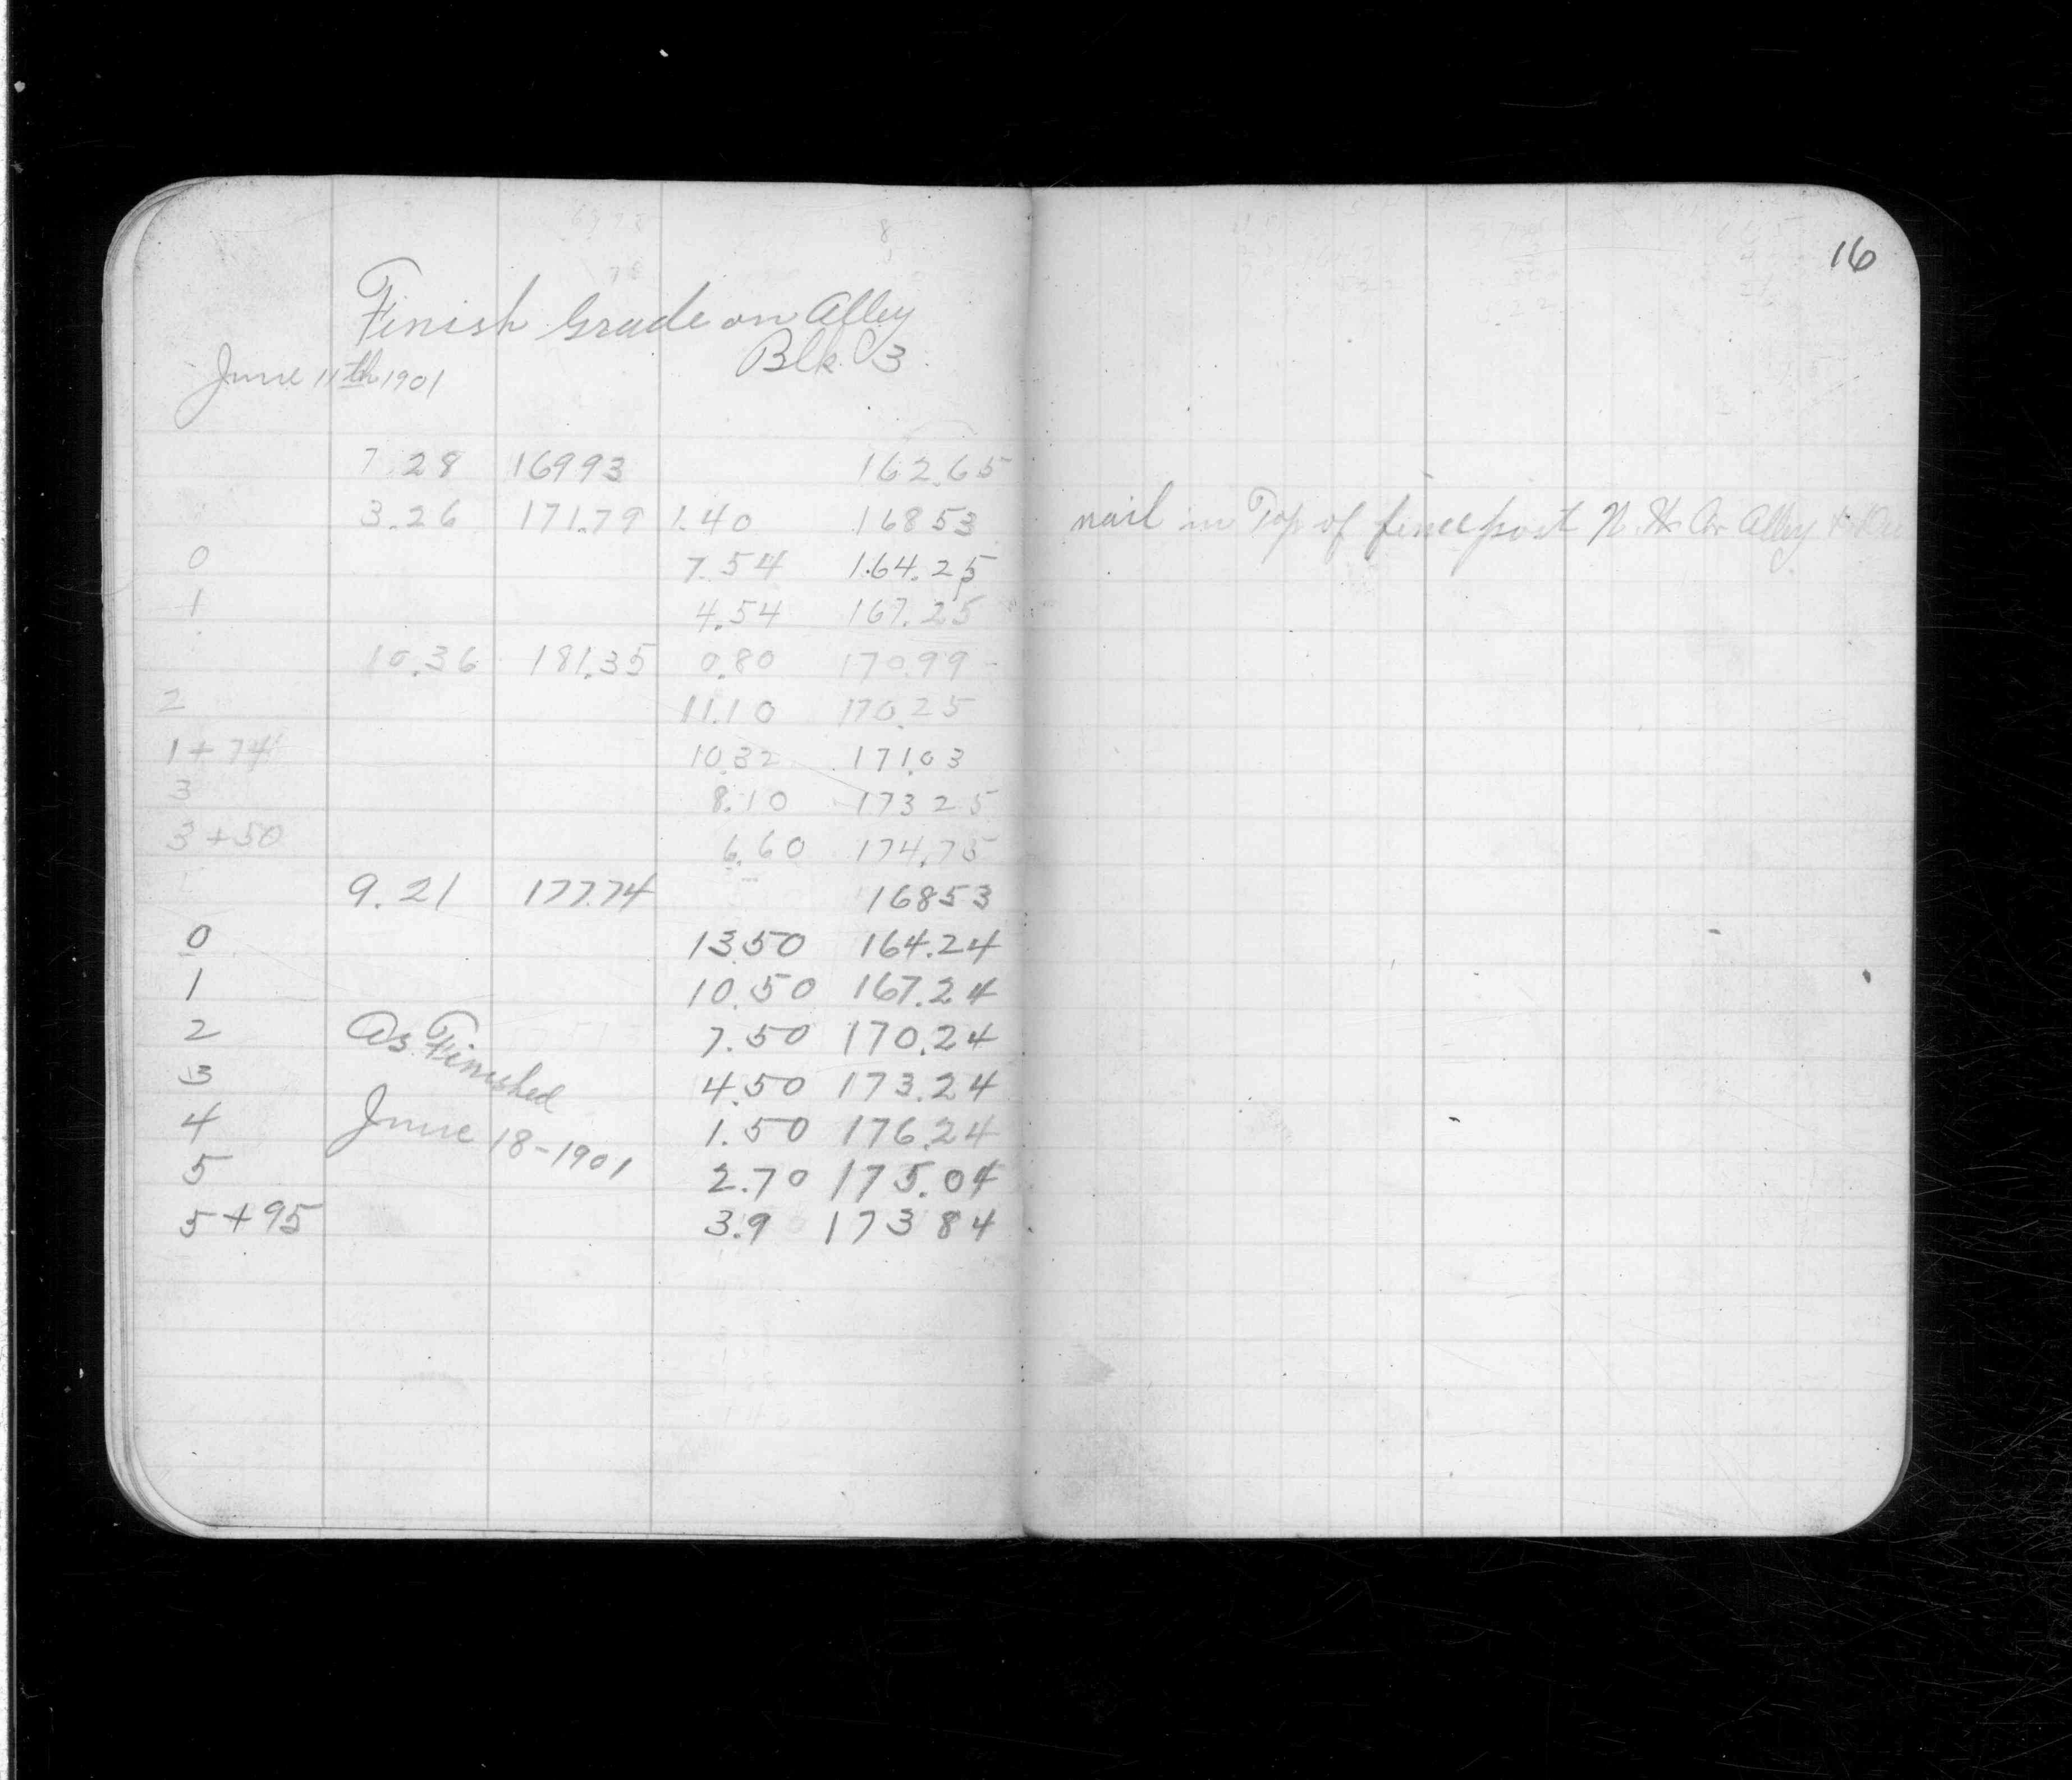 16
Finish Grade on Alley
Blk 3
June 11th 1901
7.28 16993 162.65
3.26 171.79 1.40 16853 nail in Top of fence post N. W. Cor Alley
0 7.54 164.25
1 4.54 167.25
10.36 181.35 0.80 170.99
2 11.10 170.25
1+74 10.32 171.03
3 8.10 173 25
3+50 6.60 174.75
9.21 177.74 16853
0 13.50 164.24
1 10.50 167.24
2 As Finished 7.50 170.24
3 4.50 173.24
4 June 18-1901 1.50 176.24
5 2.70 175.04
5+95 3.9 173 84